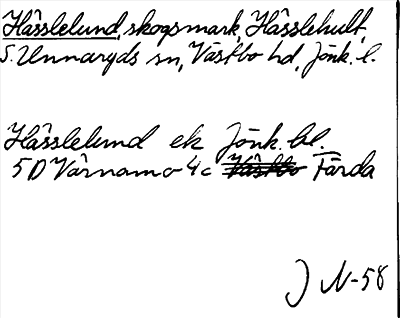 Hässlelund, skogsmark, Hässlehult,
S. Unnaryds sn, Västbo hd, Jönk. l.
Hässlelund ek Jönk. bl.
5D Värnamo 4c Västbo Färda
J N-58